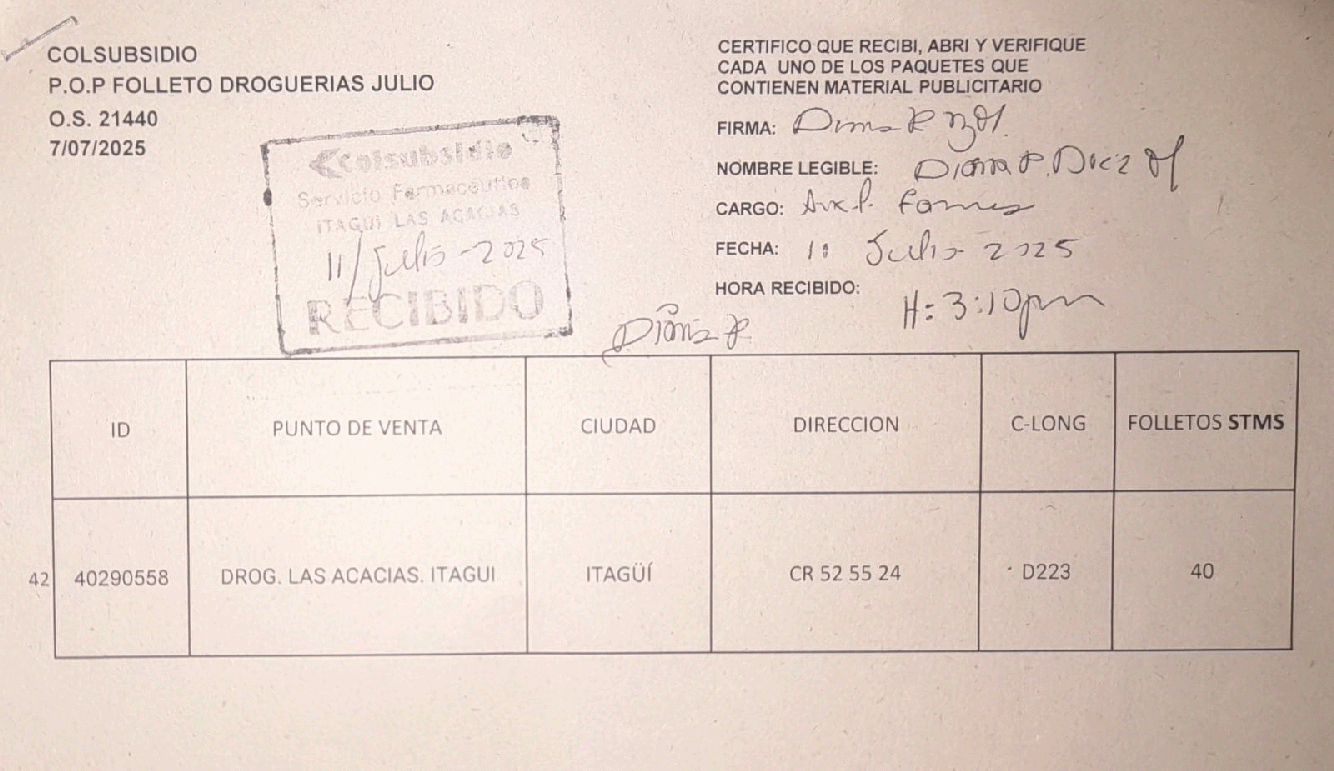 COLSUBSIDIO
P.O.P FOLLETO DROGUERIAS JULIO
O.S. 21440
7/07/2025
CERTIFICO QUE RECIBI, ABRI Y VERIFIQUE
CADA UNO DE LOS PAQUETES QUE
CONTIENEN MATERIAL PUBLICITARIO
FIRMA:
NOMBRE LEGIBLE: Diana P. Diez
CARGO:
FECHA: 11 Julio 2025
HORA RECIBIDO: H: 3:10pm
Colsubsidio
Servicio Farmaceutico
ITAGUI LAS ACACIAS
11/Julio-2025
RECIBIDO
Diana P.
ID PUNTO DE VENTA CIUDAD DIRECCION C-LONG FOLLETOS STMS
42 40290558 DROG. LAS ACACIAS. ITAGUI ITAGÜÍ CR 52 55 24 D223 40